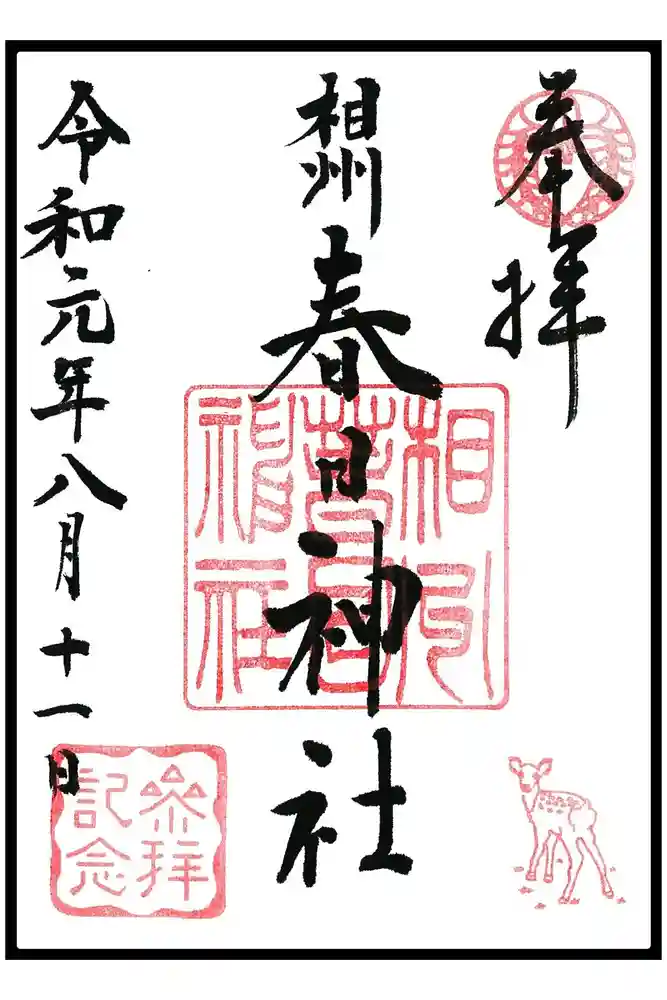 奉拝
相州
春日神社
相州
春日
神社
令和元年八月十一日
参拝
記念